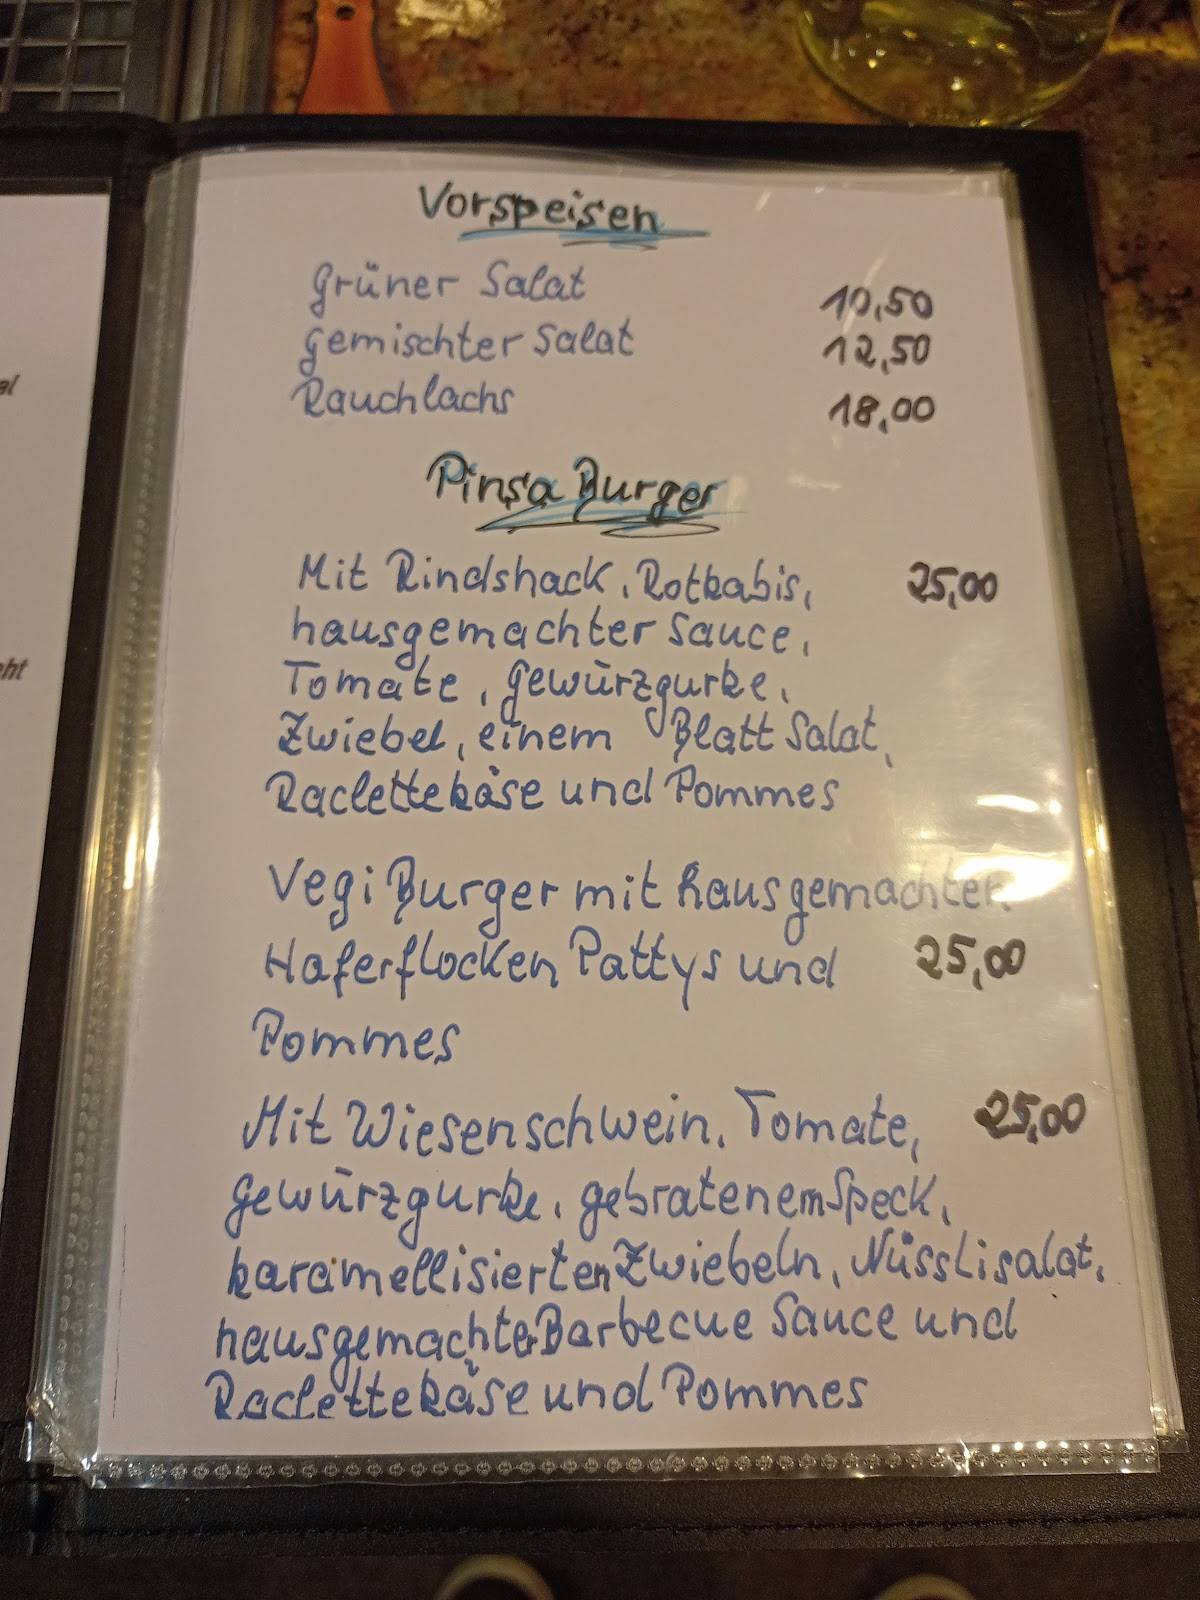 al
cht
Vorspeisen
Grüner Salat 10,50
Gemischter Salat 12,50
Rauchlachs 18,00
Pinsa Burger
Mit Rindshack, Rotkabis, 25,00
hausgemachter Sauce,
Tomate, Gewürzgurke,
Zwiebel, einem Blatt Salat,
Raclettekäse und Pommes
Vegi Burger mit hausgemachter
Haferflocken Pattys und 25,00
Pommes
Mit Wiesenschwein, Tomate, 25,00
Gewürzgurke, gebratenem Speck,
karamellisierten Zwiebeln, Nüsslisalat,
hausgemachter Barbecue Sauce und
Raclettekäse und Pommes